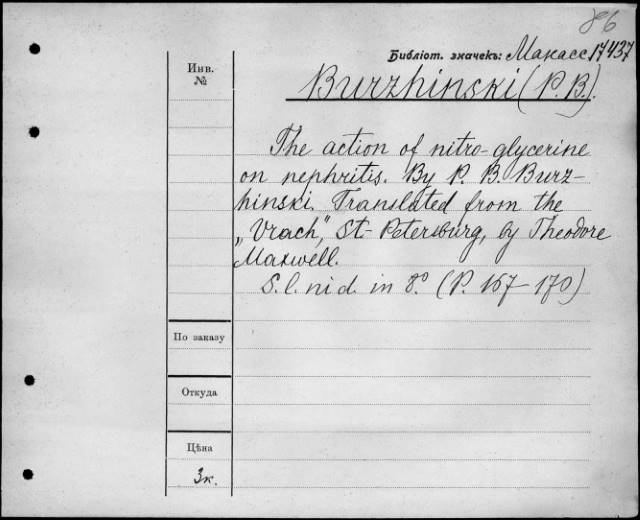 86
Библіот. значекъ: Макасс 17437
Инв.
№
Burzhinski (P. B.).
The action of nitro-glycerine
on nephritis. By P. B. Burz-
hinski. Translated from the
„Vrach", St-Petersburg, by Theodore
Maxwell.
S. l. ni d. in 8.° (P. 167-170)
По заказу
Откуда
Цѣна
3к.